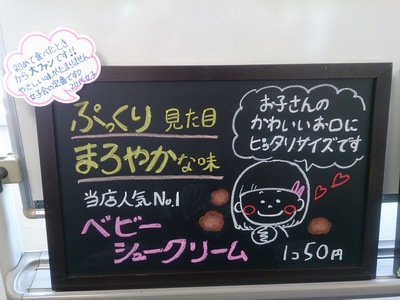 初めて食べたとき
から大ファンです!!
やさしい味がたまりません
女子会の定番です♡
20代女子
ぷっくり見た目
まろやかな味
当店人気No.1
ベビー
シュークリーム
お子さんの
かわいいお口に
ピッタリサイズです
1コ50円